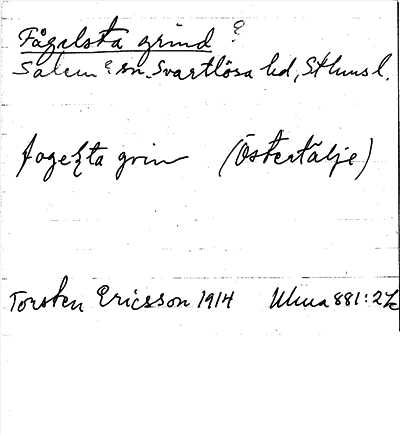 Fågelsta grind ?
Salem ? sn. Svartlösa hd, Sthms l.
fogelsta grin (Östertälje)
Torsten Ericsson 1914 Ulma 881:2